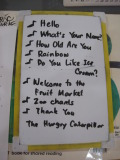 Hello
What's Your Name?
How Old Are You
Rainbow
Do You Like Ice
Cream?
Welcome to the
Fruit Market
Zoo chants
Thank You
The Hungry Caterpillar